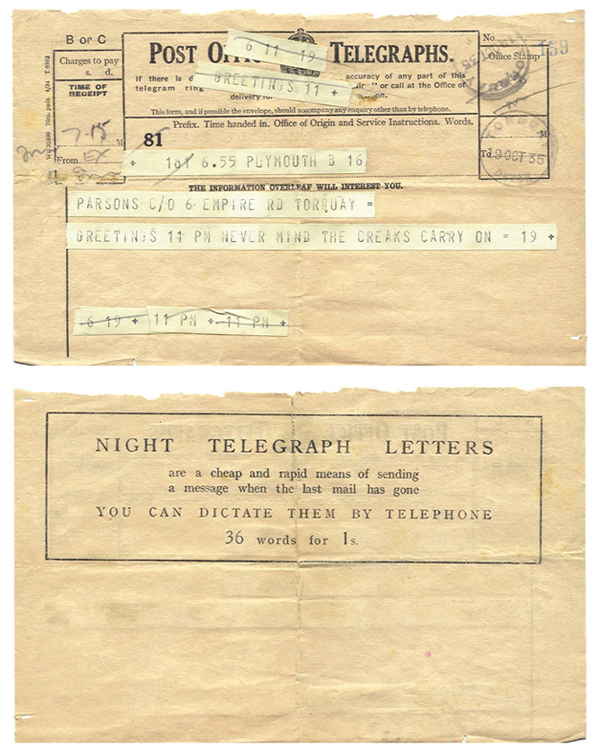 B or C
Charges to pay
s. d.
TIME OF
RECEIPT
7.15 M
From EX
POST TELEGRAPHS.
6 11 19
GREETINGS 11 +
If there is accuracy of any part of this
telegram or call at the Office of
delivery
This form, and if possible the envelope, should accompany any enquiry other than by telephone.
No. 159
Office Stamp
Prefix. Time handed in. Office of Origin and Service Instructions. Words.
81
+ 181 6.55 PLYMOUTH B 16
M
To
9 OCT 35
THE INFORMATION OVERLEAF WILL INTEREST YOU.
PARSONS C/O 6 EMPIRE RD TORQUAY =
GREETINGS 11 PM NEVER MIND THE CREAKS CARRY ON = 19 +
6 19 + 11 PM + 11 PM +
NIGHT TELEGRAPH LETTERS
are a cheap and rapid means of sending
a message when the last mail has gone
YOU CAN DICTATE THEM BY TELEPHONE
36 words for 1s.